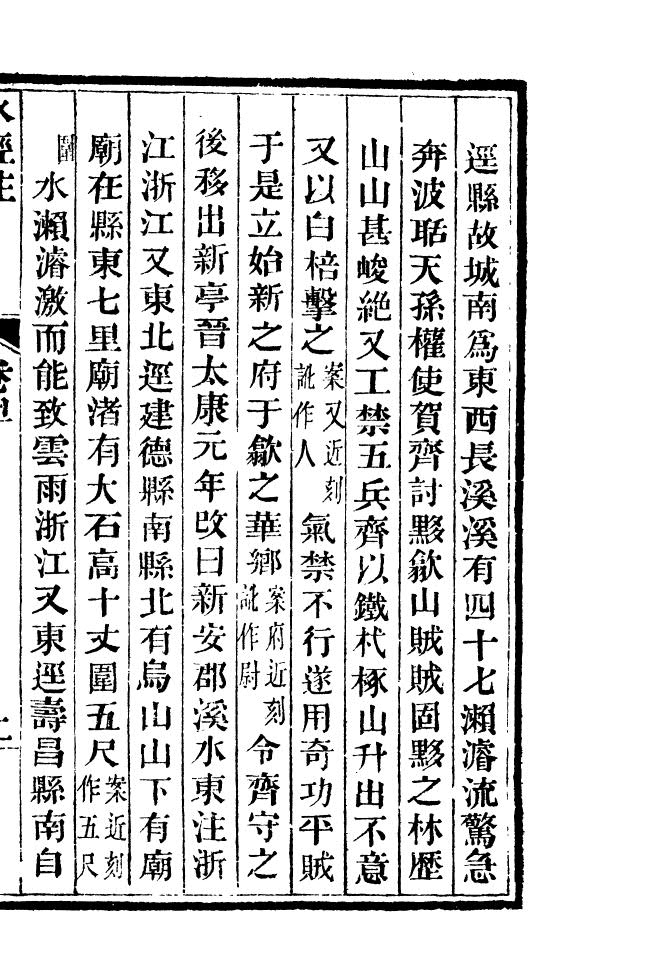 逕縣故城南爲東西長溪溪有四十七瀨濬流驚急
奔波聒天孫權使賀齊討黟歙山賊賊固黟之林歷
山山甚峻絶又工禁五兵齊以鐵杙椓山升出不意
又以白棓擊之案又近刻訛作人氣禁不行遂用奇功平賊
于是立始新之府于歙之華鄉案府近刻訛作尉令齊守之
後移出新亭晉太康元年改曰新安郡溪水東注浙
江浙江又東北逕建德縣南縣北有烏山山下有廟
廟在縣東七里廟渚有大石高十丈圍五尺案近刻作五尺
圍水瀨濬激而能致雲雨浙江又東逕壽昌縣南自
水經注